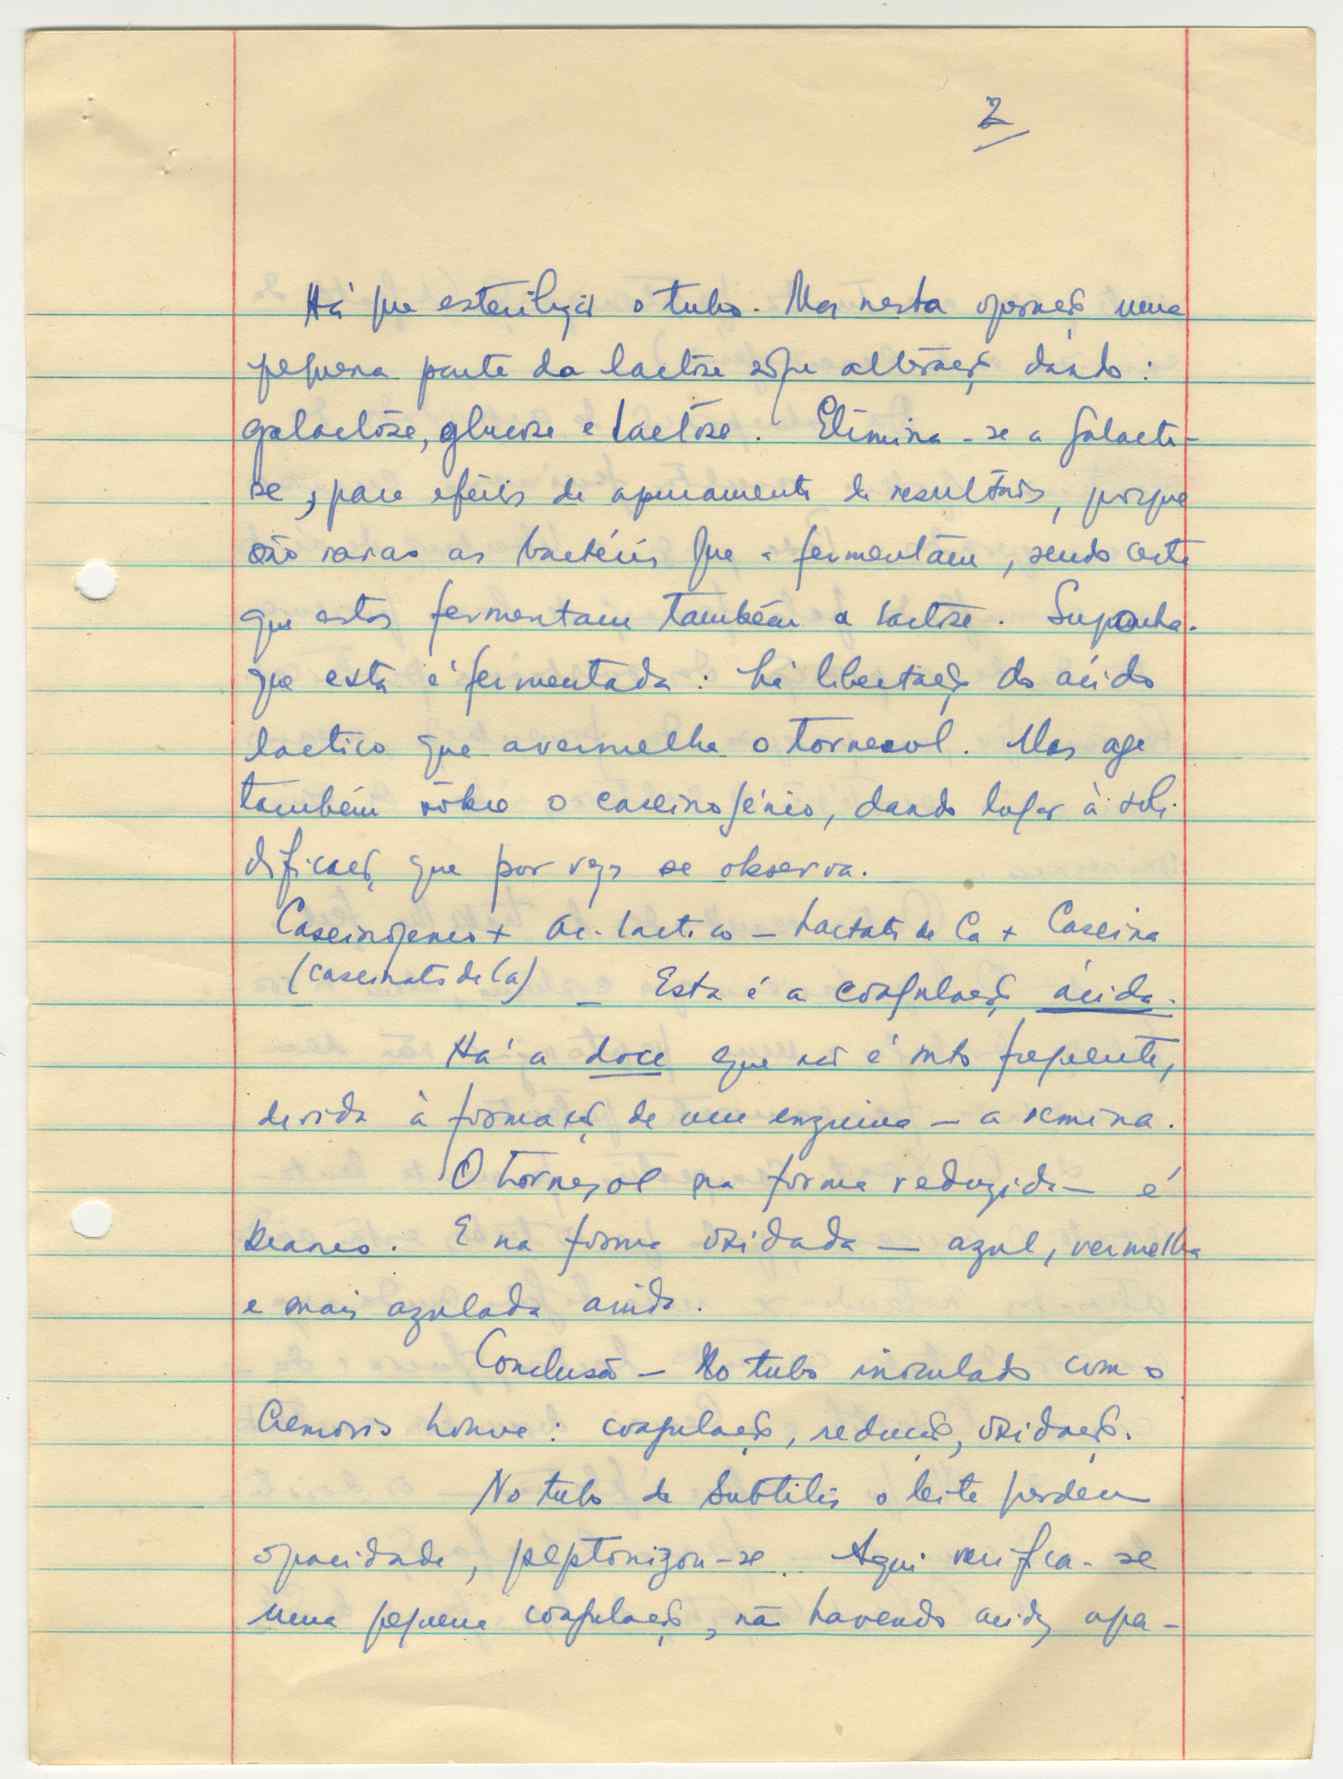 2
Há que esterilizar o tubo. Mas nesta operação uma
pequena parte da lactose sofre alteração dando:
galactóse, glucose e lactóse. Elimina-se a galacto-
se, para efeitos de apuramento de resultados, porque
são raras as bactérias que a fermentam, sendo certo
que estas fermentam também a lactose. Suponha-
que esta é fermentada: há libertação do ácido
lactico que avermelha o tornesol. Mas age
também sôbre o caseinogénio, dando lugar à soli-
dificação que por vezes se observa.
Caseinogeneo + ac. lactico – Lactato de Ca + Caseina
(caseinato de Ca) – Esta é a coagulação ácida.
Há a doce que não é mto frequente,
devida à formação de um enzima – a renina.
O tornesol na forma reduzida – é
branco. E na forma oxidada – azul, vermelha
e mais azulada ainda.
Conclusão – No tubo inoculado com o
Cremoris houve: coagulação, redução, oxidação.
No tubo de Subtilis o leite perdeu
opacidade, peptonizou-se. Aqui verifica-se
uma pequena coagulação, não havendo acidez apa-